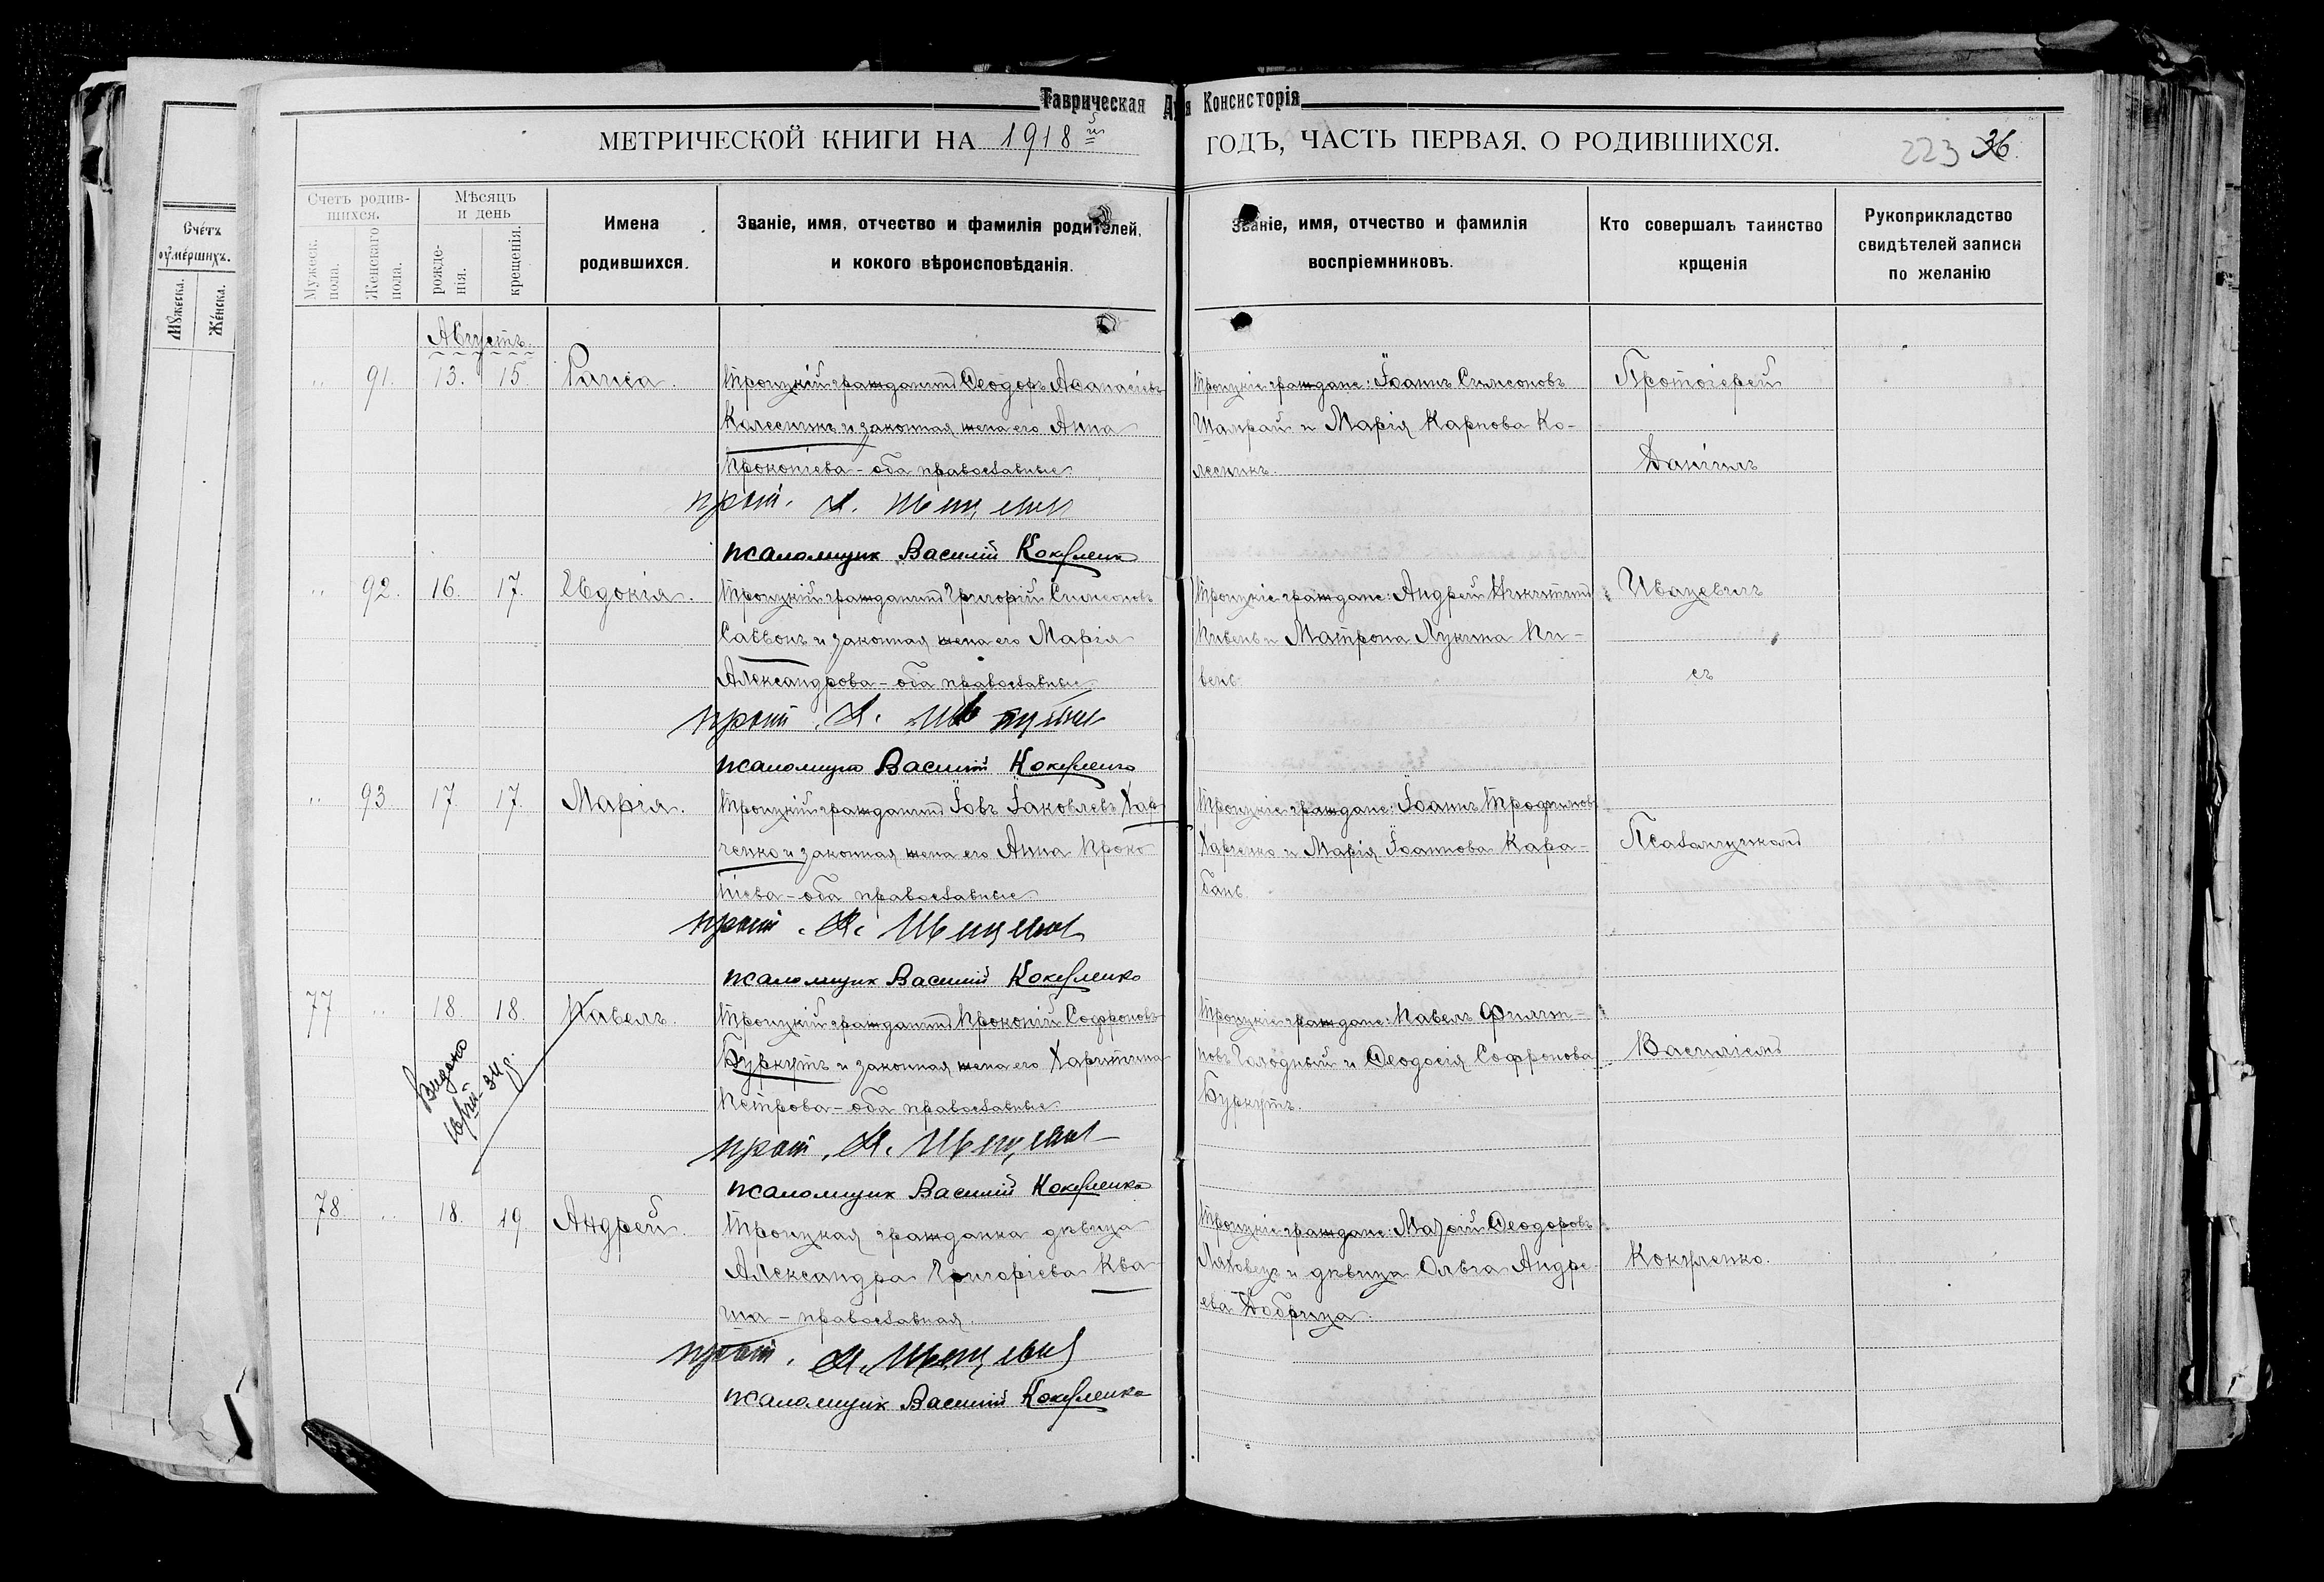 Таврическая Ду
я Консисторія
МЕТРИЧЕСКОЙ КНИГИ НА 1918й
ГОДЪ, ЧАСТЬ ПЕРВАЯ. О РОДИВШИХСЯ.
223 36.
Счетъ родив-
шихся.
Мужеск.
пола.
Женскаго
пола.
Мѣсяцъ
и день
рожде-
нія.
крещенія.
Имена
родившихся.
Званіе, имя, отчество и фамилія родителей,
и кокого вѣроисповѣданія.
Званіе, имя, отчество и фамилія
воспріемниковъ.
Кто совершалъ таинство
крщенія
Рукоприкладство
свидѣтелей записи
по желанію
Счётъ
оумершихъ.
Мужеска.
Женска.
Августъ.
„ 91. 13. 15. Раиса.
Троицкій гражданинъ Ѳеодоръ Аѳанасіевъ
Колесникъ и законная жена его Анна
Прокопіева - оба православные.
прот. Д.
псаломщик Василій Кокуленко
Троицкіе граждане: Іоаннъ Симеоновъ
Шамрай и Марія Карпова Ко-
лесникъ.
Протоіерей
Даніилъ
„ 92. 16. 17. Евдокія.
Троицкій гражданинъ Григорій Симеоновъ
Саввонъ и законная жена его Марія
Александрова - оба православные.
прот. Д.
псаломщик Василій Кокуленко
Троицкіе граждане: Андрей Никитинъ
Кивень и Матрона Лукина Ки-
вень.
съ
„ 93. 17. 17. Марія.
Троицкій гражданинъ Іовъ Іаковлевъ Хар-
ченко и законная жена его Анна Проко-
піева - оба православные
прот. Д.
псаломщик Василій Кокуленко
Троицкіе граждане: Іоаннъ Трофимовъ
Харченко и Марія Іоаннова Кара-
бань.
Псаломщикомъ
77 „ 18. 18. Павелъ.
Выдана
Троицкій гражданинъ Прокопій Софроновъ
Буркутъ и законная жена его Харитина
Петрова - оба православные.
прот. Д.
псаломщик Василій Кокуленко
Троицкіе граждане: Павелъ Филип-
повъ Голодный и Ѳеодосія Софронова
Буркутъ.
Василіемъ
78. „ 18. 19. Андрей.
Троицкая гражданка дѣвица
Александра Григоріева Ква-
ша - православная.
прот. Д.
псаломщик Василій Кокуленко
Троицкіе граждане: Ѳеодоровъ
Ляховецъ и дѣвица Ольга Андре-
ева Добрица.
Кокуленко.